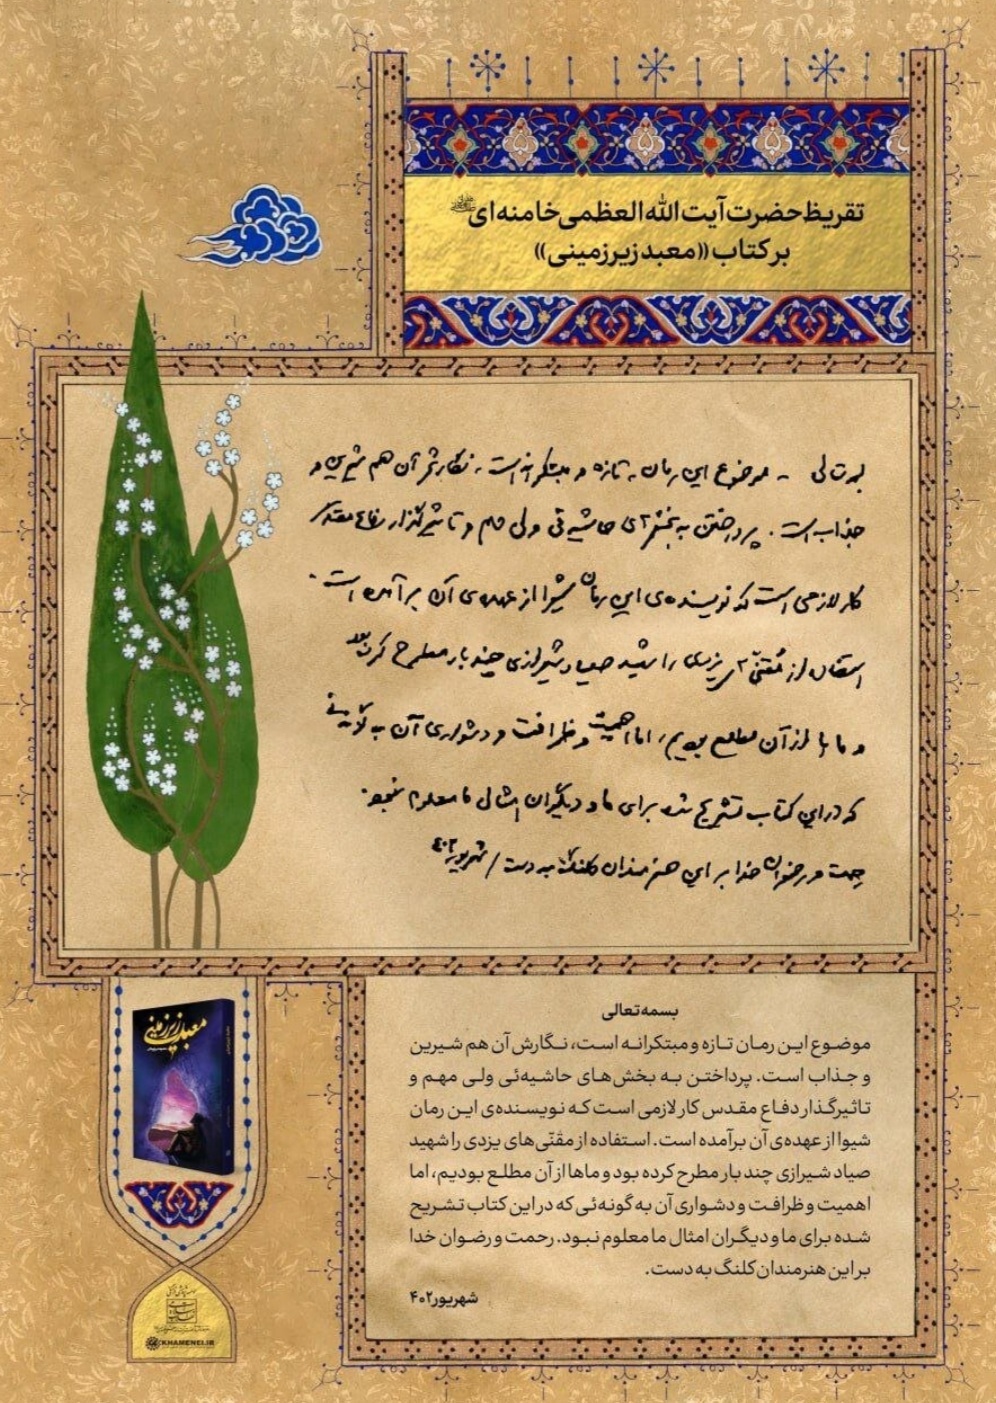 تقریظ حضرت آیت الله العظمی خامنه ای
بر کتاب ((معبد زیرزمینی))
بسمه‌تعالی - موضوع این رمان، تازه و مبتکرانه است، نگارش آن هم شیرین و
جذاب است. پرداختن به بخشهای حاشیه‌ئی ولی مهم و تاثیرگذار دفاع مقدس
کار لازمی است که نویسنده‌ی این رمان شیوا از عهده‌ی آن برآمده است.
استفاده از مقنّی‌های یزدی را شهید صیاد شیرازی چند بار مطرح کرده بود
و ماها از آن مطلع بودیم، اما اهمیت و ظرافت و دشواری آن به گونه‌ئی
که در این کتاب تشریح شده برای ما و دیگران امثال ما معلوم نبود.
رحمت و رضوان خدا بر این هنرمندان کلنگ به دست / شهریور ۴۰۲
بسمه تعالی
موضوع این رمان تازه و مبتکرانه است، نگارش آن هم شیرین
و جذاب است. پرداختن به بخش‌های حاشیه‌ئی ولی مهم و
تاثیرگذار دفاع مقدس کار لازمی است که نویسنده‌ی این رمان
شیوا از عهده‌ی آن برآمده است. استفاده از مقنّی‌های یزدی را شهید
صیاد شیرازی چند بار مطرح کرده بود و ماها از آن مطلع بودیم، اما
اهمیت و ظرافت و دشواری آن به گونه‌ئی که در این کتاب تشریح
شده برای ما و دیگران امثال ما معلوم نبود. رحمت و رضوان خدا
بر این هنرمندان کلنگ به دست.
شهریور ۴۰۲
معبد زیرزمینی
KHAMENEI.IR